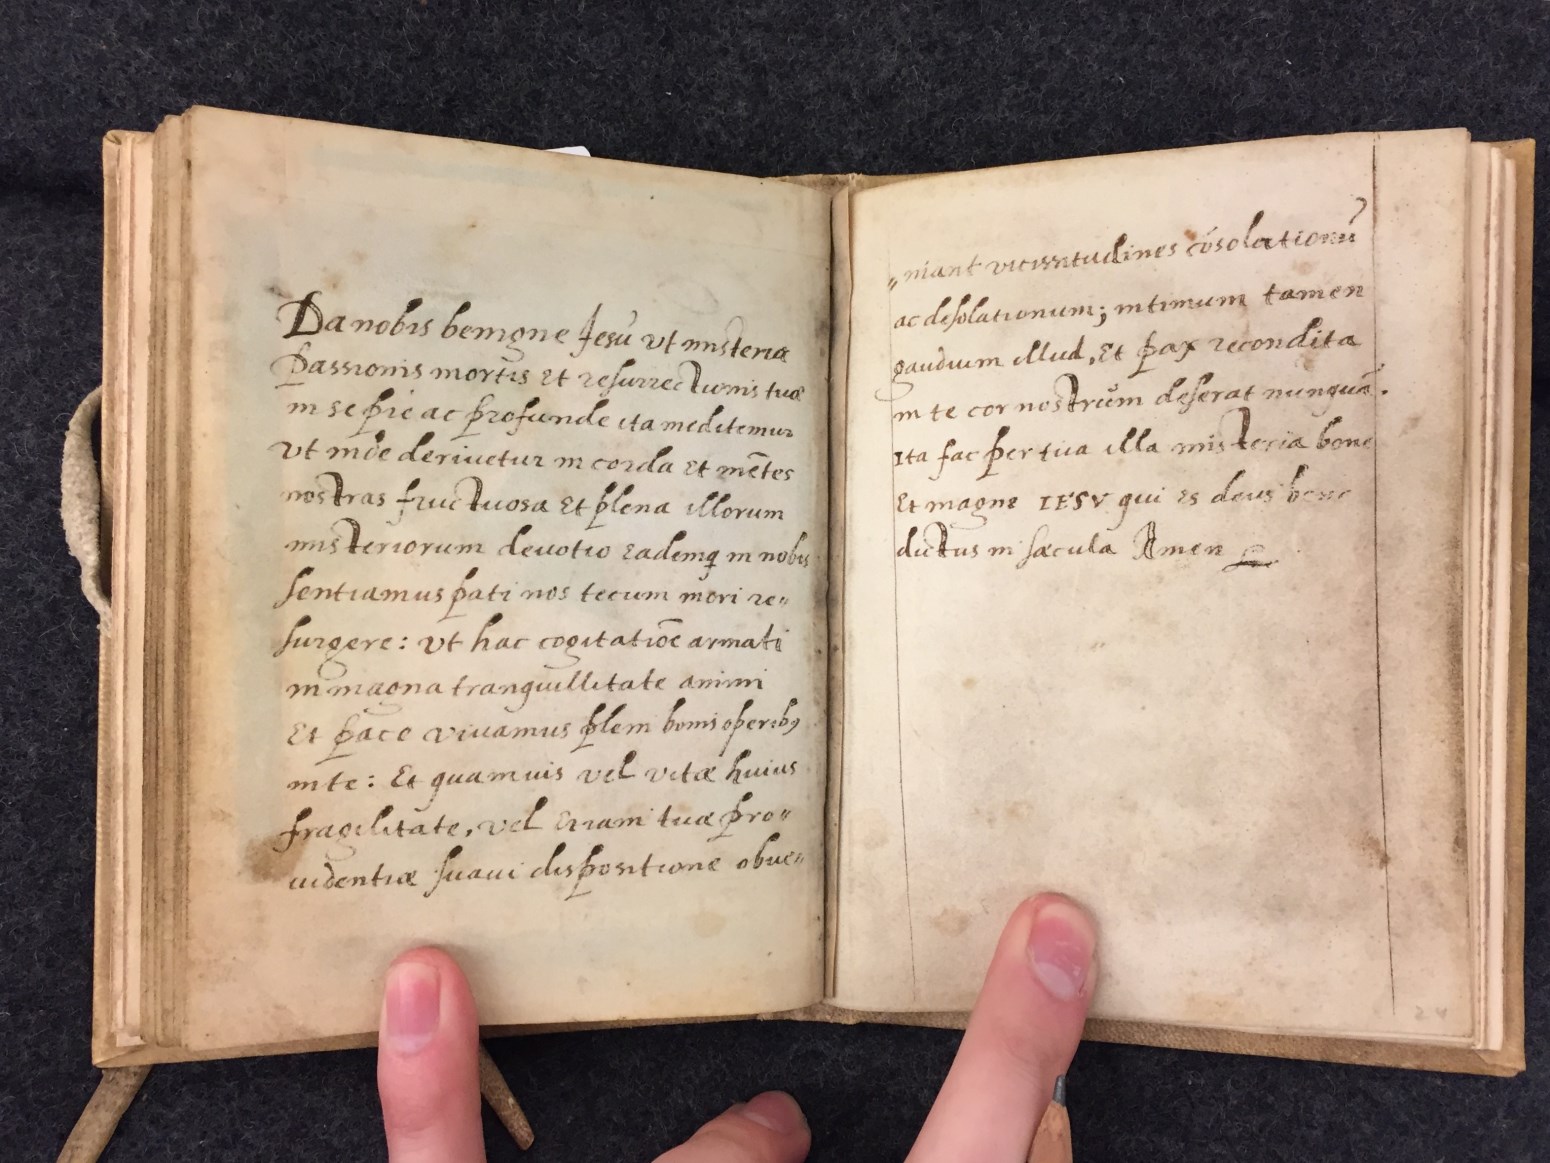 Da nobis benigne Jesu̓ vt misteria
Passionis mortis et resurrectionis tuæ
in sepie ac profunde ita meditemur
vt in̄de deriuetur in corda et mētes
nostras fructuosa et plena illorum
misteriorum deuotio eademq̨ in nobis
sentiamus pati nos tecum mori re„
surgere: vt hac cogitatiōe armati
in magna tranquillitate animi
Et pace viuamus pleni bonis operibꝰ
in te: Et quamuis vel vitæ huius
fragilitate, vel etiam tuæ pro„
uidentiæ suaui dispositione obue„
„niant vicissitudines cōsolationū
ac desolationum; intimum tamen
gaudium illud, et pax recondita
in te cor nostrūm deserat nunquā.
Ita fac per tua illa misteria bone
Et magne IESV qui es deus bene
dictus in sæcula Amen
24